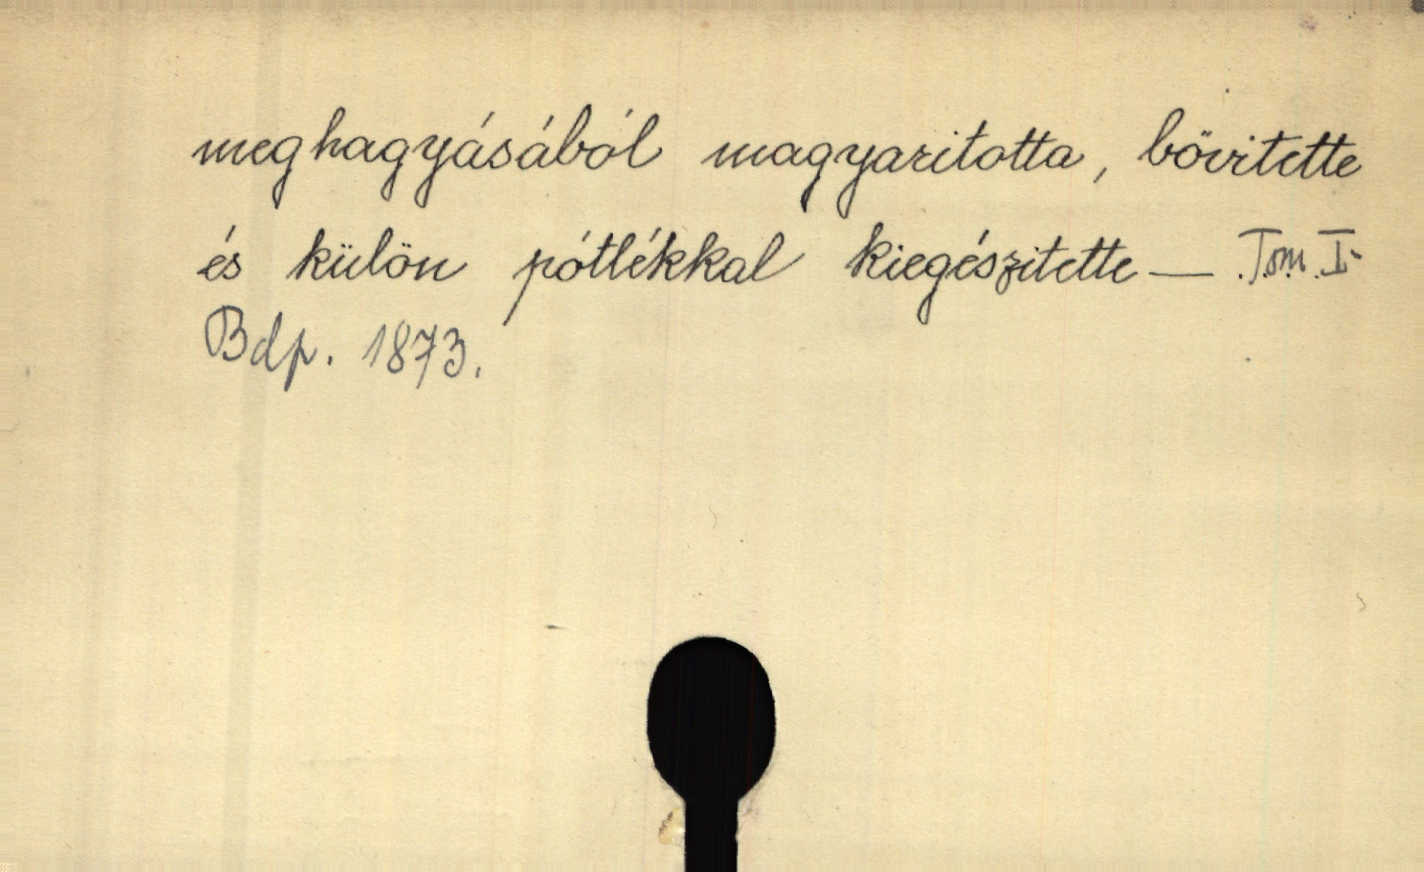 meghagyásából magyaritotta, bővitette
és külön pótlékkal kiegészitette — Tom. I-
Bdp. 1873.